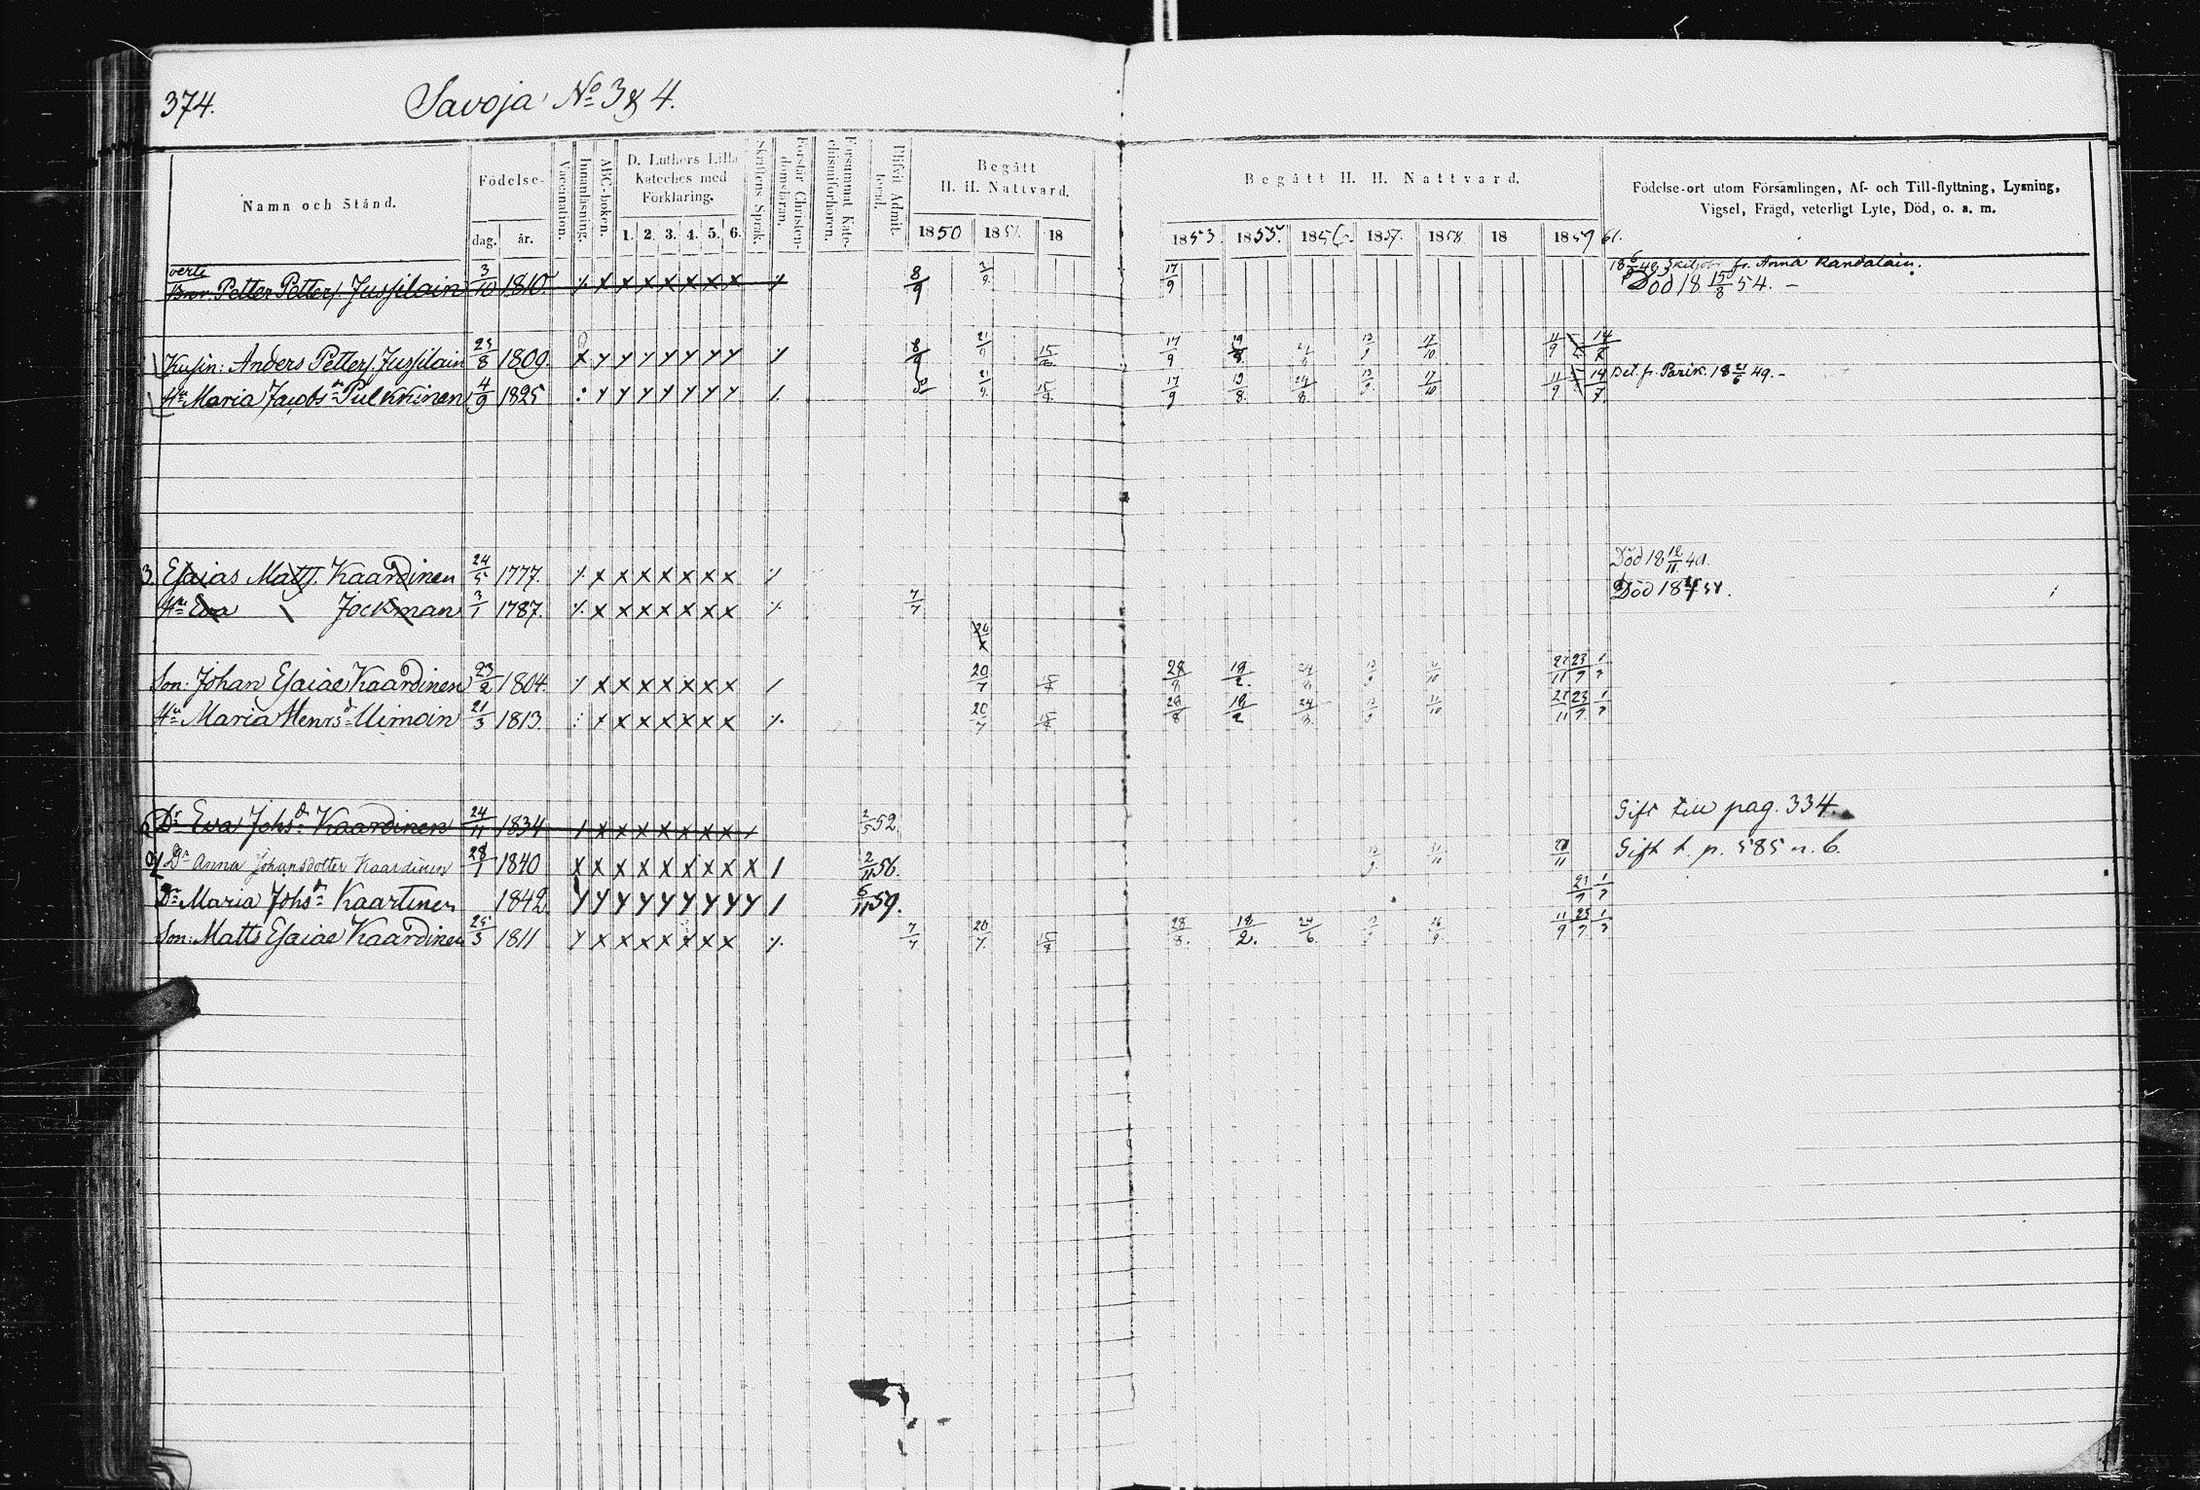 374. Savoja No 3 & 4.
Namn och Stånd. Födelse- dag. år. Vaccination. Innanläsning. ABC-boken. D. Luthers Lilla Kateches med Förklaring. 1. 2. 3. 4. 5. 6. Skriftens Språk. Förstår Christendomsläran. Försummat Katechismiförhören. Blifvit Admitterad. Begått H. H. Nattvard. 1850 1851. 18
Begått H. H. Nattvard. 1853. 1855. 1856. 1857. 1858 18 1859 61. Födelse-ort utom Församlingen, Af- och Till-flyttning, Lysning, Vigsel, Frägd, veterligt Lyte, Död, o. a. m.
verte
Petter Petterss. Jussilain 3/10 1810. 8/9 17/9 fr. Anna Kandalain.
Död 18 15/8 54. –
Kusin: Anders Petterss. Jussilain 23/8 1809. 8/9 21/9 17/9 19/8. 13/9 17/10 11/9
Hu Maria Jacobs dr Pulkkinen 4/9 1825 21/9 17/9 19/8. 24/8 13/9. 17/10 11/9 14/7. Bet. fr. Parik. 18 21/6 49. –
3. Esaias Matss. Kaardinen 24/5 1777. Död 18 12/11 49.
Hu Eva Jockman 3/1 1787. 7/7 Död 18
20
Son: Johan Esaiae Kaardinen 23/2 1804. 20/7 15/8 28/8 19/2. 13/9 21/11 23/7 1/7
Hu Maria Henrs d. Uimoin 21/3 1813. 20/7 15/8 28/8 19/2 24/8. 13/9 21/11 23/7. 1/7
Dr Eva Johs d. Kaardinen 24/11 1834 2/5 52. Gift till pag. 334.
Dr Anna Johansdotter Kaardinen 28/1 1840 2/11 56. Gift t. p. 585 n. 6.
Dr Maria Johs dr Kaartinen 1842. 6/11 59. 23/7 1/7
Son: Matts Esaiae Kaardinen 25/3 1811 7/7 20/7. 15/8 28/8. 19/2. 24/6. 11/9 23/7 1/7